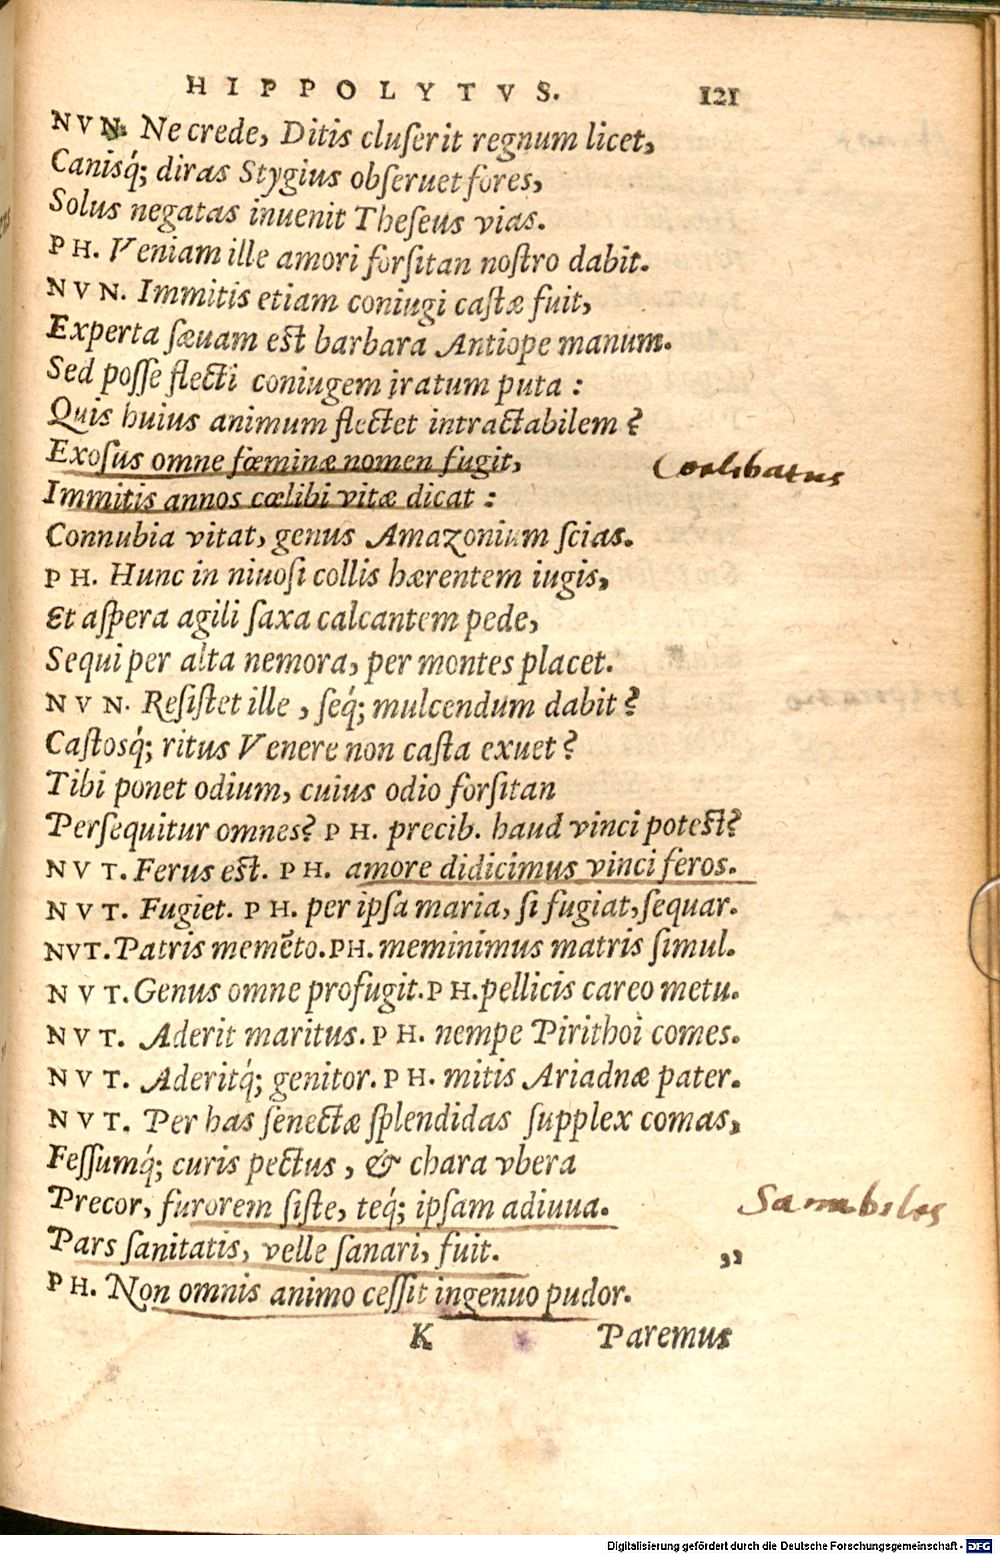 HIPPOLYTVS. 121
NVN. Ne crede, Ditis cluserit regnum licet,
Canisq́; diras Stygius obseruet fores,
Solus negatas inuenit Theseus vias.
PH. Veniam ille amori forsitan nostro dabit.
NVN. Immitis etiam coniugi castæ fuit,
Experta sæuam est barbara Antiope manum.
Sed posse flecti coniugem iratum puta:
Quis huius animum flectet intractabilem?
Exosus omne fœminæ nomen fugit, Coelibatus
Immitis annos cælibi vitæ dicat:
Connubia vitat, genus Amazonium scias.
PH. Hunc in niuosi collis hærentem iugis,
Et aspera agili saxa calcantem pede,
Sequi per alta nemora, per montes placet.
NVN. Resistet ille, seq́; mulcendum dabit?
Castosq́; ritus Venere non casta exuet?
Tibi ponet odium, cuius odio forsitan
Persequitur omnes? PH. precib. haud vinci potest?
NVT. Ferus est. PH. amore didicimus vinci feros.
NVT. Fugiet. PH. per ipsa maria, si fugiat, sequar.
NVT. Patris memẽto. PH. meminimus matris simul.
NVT. Genus omne profugit. PH. pellicis careo metu.
NVT. Aderit maritus. PH. nempe Pirithoi comes.
NVT. Aderitq́; genitor. PH. mitis Ariadnæ pater.
NVT. Per has senectæ splendidas supplex comas,
Fessumq́; curis pectus, & chara vbera
Precor, furorem siste, teq́; ipsam adiuua.
Pars sanitatis, velle sanari, fuit. ,,
PH. Non omnis animo cessit ingenuo pudor.
K Paremus
Digitalisierung gefördert durch die Deutsche Forschungsgemeinschaft - DFG